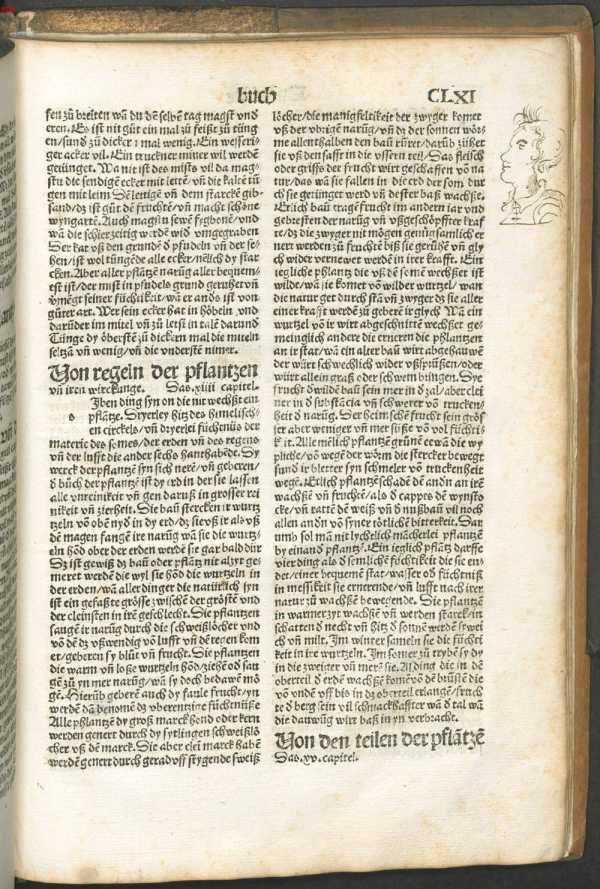 buch
CLXI
sen zů breiten wā du dē selbē tag magst vnd
eren. Es ist nit gůt ein mal zů feißt zů tüng
en/sund zů dicker mal wenig. Ein wesseri-
ger acker vil. Ein truckner miner wil werdē
getünget. Wa nit ist des mists vil da mag-
stu die sendigē ecker mit lettē/vñ die kalcē tü
gen mit leim
sand/dz ist gůt dē früchtē/vñ macht schöne
wyngartē. Auch magstu
wa die schierzeitig
Der kat vß den grundē d
hen/ist wol tüngēde alle ecker
cken. Aber aller pflātzē narūg aller bequem-
est ist/der mist in pfudels grund gerůhet vñ
vmēgt seiner füchtikeit/wā er anders ist von
gůter art. Wer sein ecker hat in höbeln vnd
darūder im mitel vñ zů letst in talē darund
Tünge dy öberstē zů dickern mal die miteln
seltzā vñ wenig/vñ die vnderstē nimer.
Von regeln der pflantzen
vñ iren wirckunge. Das .xiiii. capitel.
Iben ding syn on die nit wechßt ein
s pflātze. Dryerley hitz des himelisch-
en circkels/vñ dryerlei füchtnüs der
materie des somes/der erden vñ des regens
vñ der lufft die ander sechs hanthabēde. Dy
werck der pflātzē syn sich nerē/vñ geberen/
d büch der pflātzē ist dy erd in der sie lassen
alle vnreinikeit vñ gen daruß in grosser rei
nikeit vñ zierheit. Die baū stercken ir wurtz
tzeln vō obē nyd in dy erd/dz sie vß ir als vß
dē magen fangē ire narūg wā sie die wurtz-
eln hōd ober der erden werdē sie gar bald dür
Dz ist gewiß dz baū oder pflātz nit alzyt ge-
meret werdē die wyl sie hōd die wurtzeln in
der erden/wā aller dinger die natürlich syn
ist ein gefaßte grösse zwischē der gröstē vnd
der cleinsten in irē geschlecht. Die pflantzen
saugē ir narūg durch die schweißlöcher vnd
vō dē dz vßwendig vō lufft vñ dē regen kom
et/geberen sy blüt vñ frucht. Die pflantzen
die warm vñ loße wurtzeln hōd/ziehē od sau
gē zů yn mer narūg/wā sy doch bedawē mō
gē. Hierūb geberē auch dy faule frucht/yn
werdē dā benomē dz vberentzige füchtnüße
Alle pflantzē dy groß marck hōnd oder kern
werden genert durch dy sytlingen schweißlö
cher vß dē marck. Die aber clei marck habē
werdē genert durch geradvff stygende sweiß
löcher/die manigfeltikeit der zwyger komet
vß der vbrigē narūg/vñ dz der sonnen wör-
me allenthalben den baū rüret/darūb züher
sie vß den safft in die vssern teil/Das fleisch
oder griffs der frucht wirt geschaffen vō na
tur/das wā sie fallen in die erd der som dur
ch sie getünget werd vñ dester baß wachße.
Etlich baū tragē frucht im andern iar vnd
gebrästen der narūg vñ vßgeschöpffter kraf
te/dz die zwyger nit mögen genügsamlich er
nert werden zů fruchtē biß sie gerüwē vñ gly
ch wider vernewet werdē in irer krafft. Ein
iegliche phlantz die vß dē somē wechßet ist
wilde/wā sie komet vō wilder wurtzel/wan
die natur get durch stā vñ zwyger dz sie aller
einer krafft werdē zů geberē ir glych Wā ein
wurtzel vō ir wirt abgeschnittē wechßet ge-
meinglich andere die erneren die pflantzen
an ir stat/wā ein alter baū wirt abgehauwē
der würt schwechlich wider vßsprüßen/oder
würt allein graß oder schwem bringen. Dye
frucht d wildē baū sein mer in d zal/aber clei
ner in d substācia vñ schwerer vō trucken-
heit d narūg. Der heimschē frucht sein grös
ser aber weniger vñ mer süße vō vol füchti-
kit. Alle mēlich pflantzē grünē etwā die wy
pliche/vō wegē der wörm die stercker bewegt
sund ir bletter syn schmeler vō truckenheit
wegē. Etlich pflātzē schadē dē andn an irē
wachßē vñ fruchtē/als d cappes dē wynsto
cke/vñ rattē dē weiß vñ d nußbaū vil noch
allen andn vō syner tötlichē bitterkeit. Dar
umb sol mā nit lychtlich mācherlei pflantzē
by einand pflantzē. Ein ieglich pflātz darffe
vier ding als d semlichē füchtikeit die sie en-
det/einer bequemē stat/wasser od füchtniß
in messikeit sie ernerende/vñ lufft nach irer
natur zů wachßē bewegende. Die pflantzē
in warmer zyt wachßē vñ werden starck/in
schatten d necht vñ hitz d sonnē werdē sy wei
ch vñ milt. Im winter sameln sie die füchti
keit in ire wurtzeln. Im somer zů trybē sy dy
in die zweiger vñ merē sie. Al ding die in dē
oberteil d erdē wachßē komē vō dē brüstē die
vō vndē vff biß in dz oberteil erlangē/frucht
te d berg sein vil schmackhaffter wā d tal wā
die dauwūg wirt baß in yn verbracht.
Von den teilen der pflātzē
Das .xv. capitel.